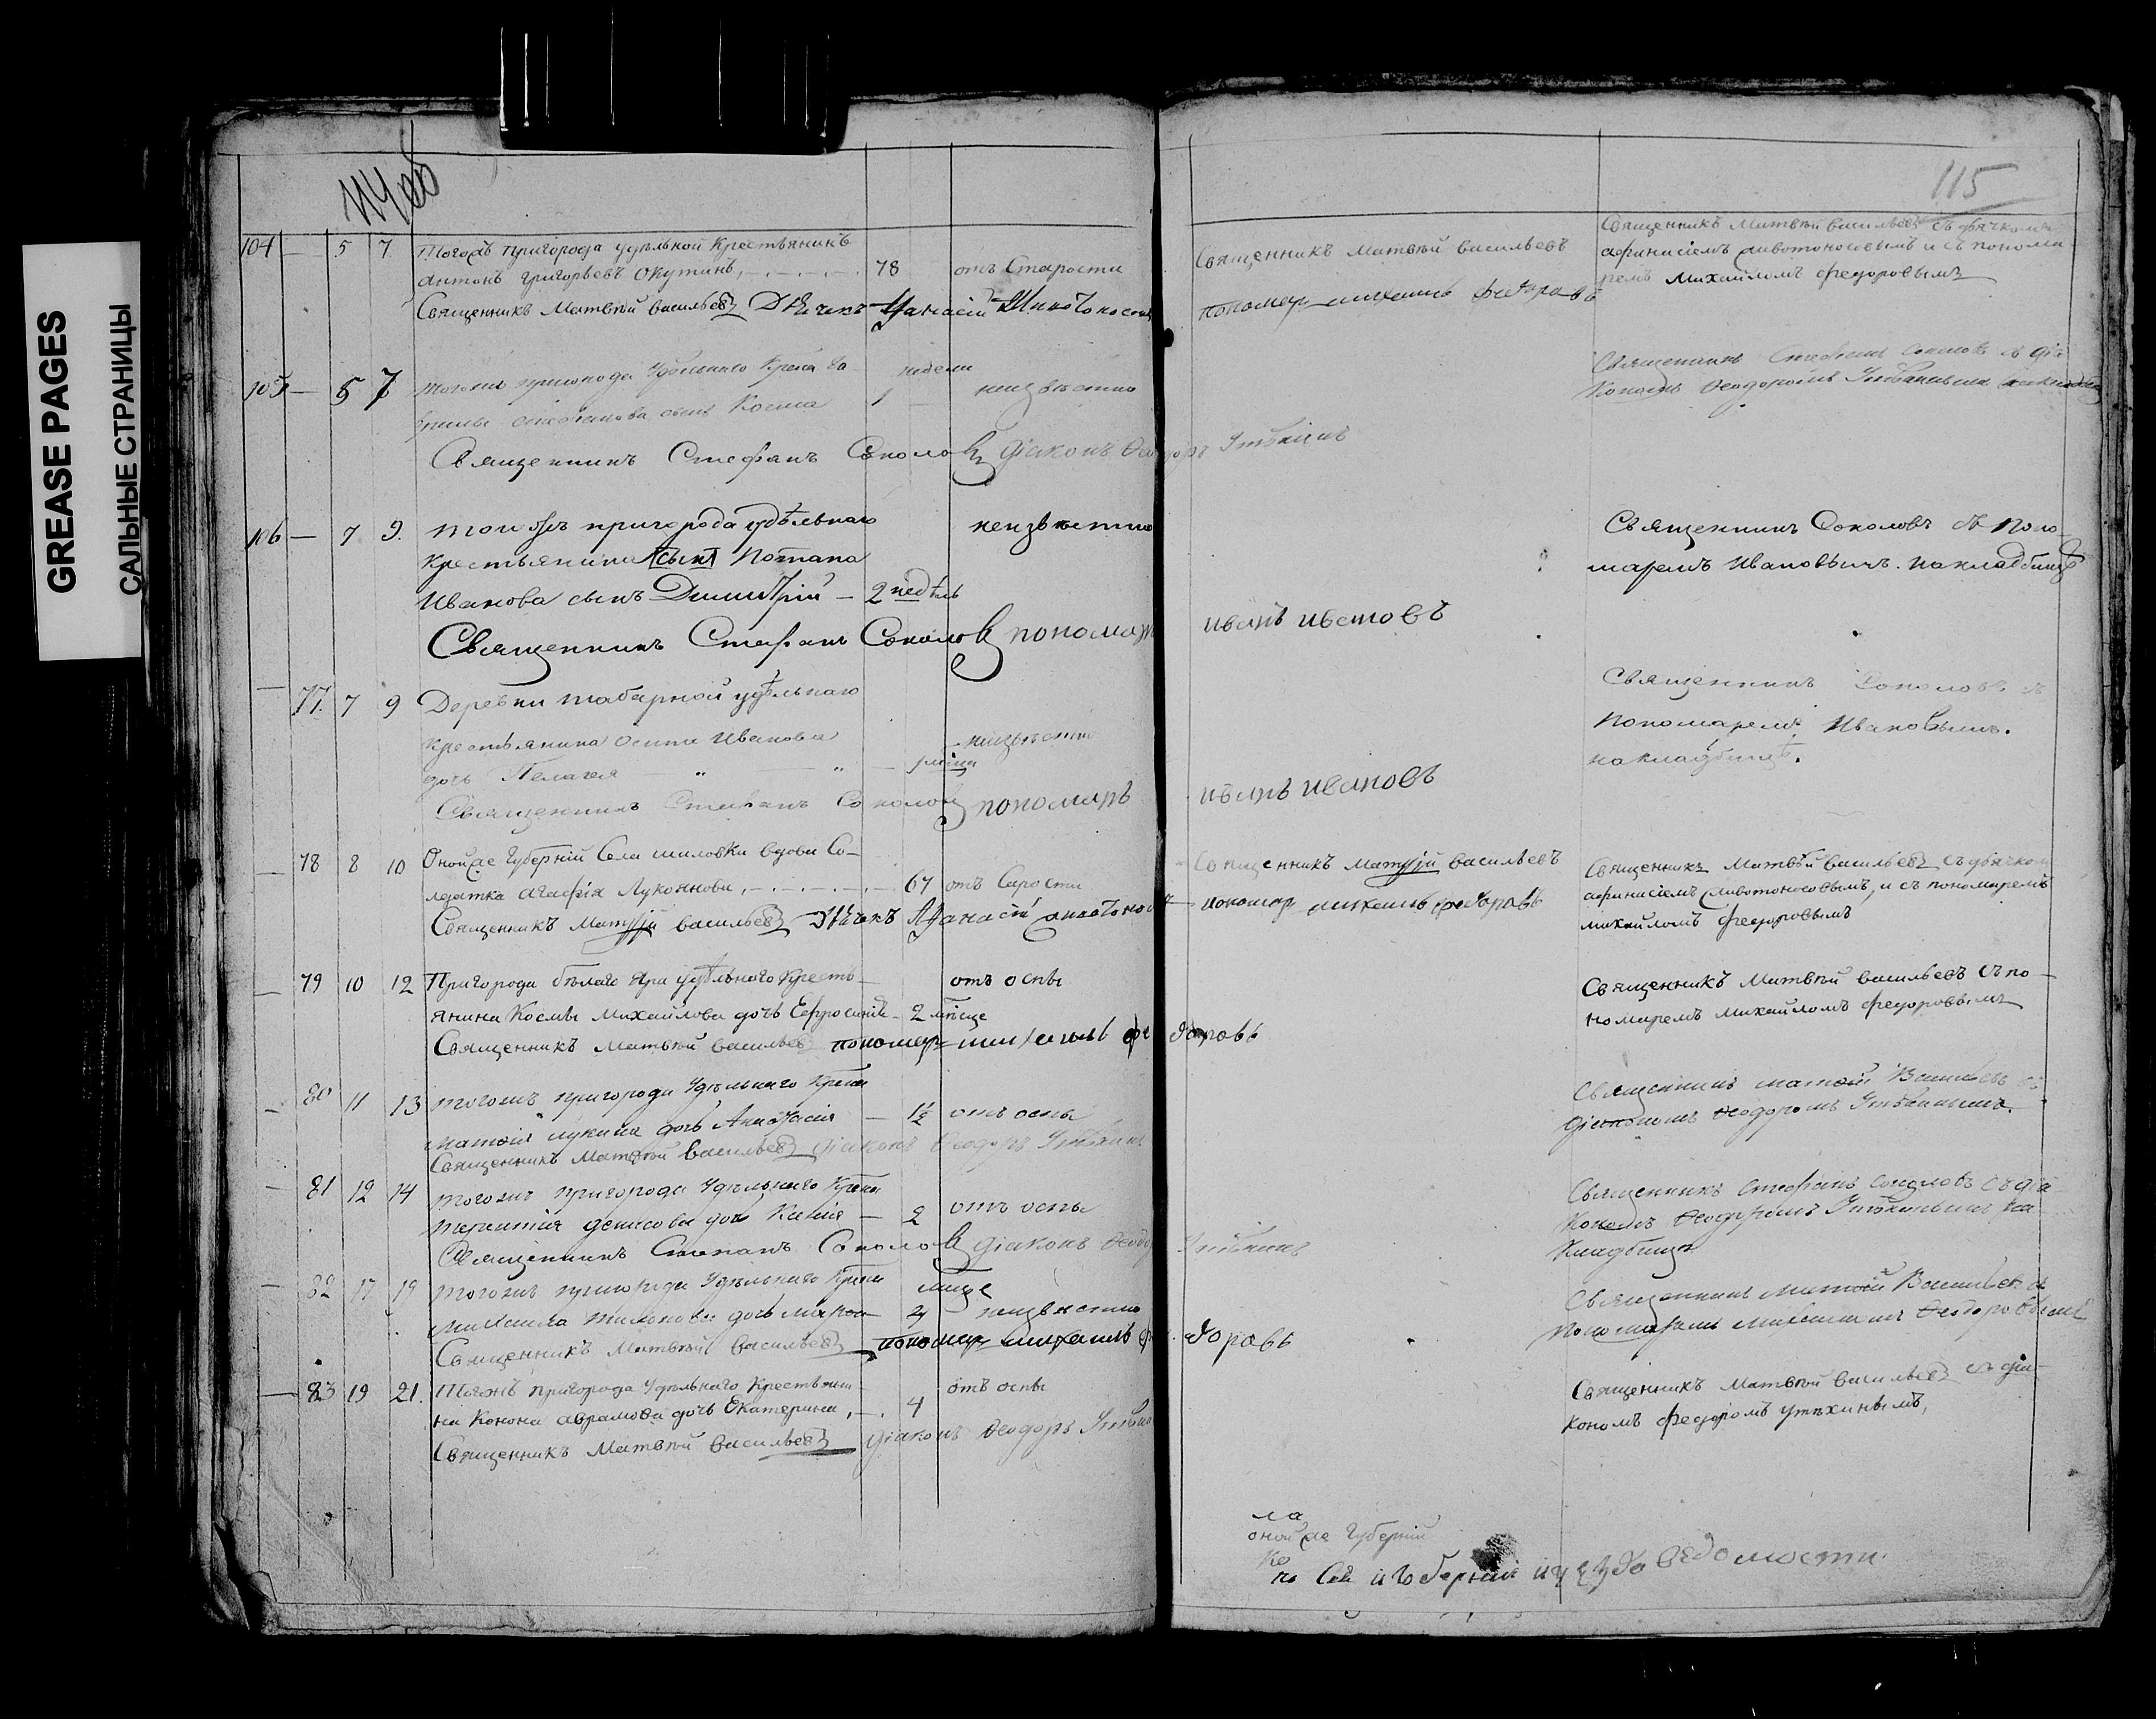 GREASE PAGES
САЛЬНЫЕ СТРАНИЦЫ
114 об
115
104 — 5 7 Тогожъ пригорода удѣльной Крестьянинъ
Антонъ Григорьевъ Окутинъ, 78 отъ Старости
Священникъ Матвѣй Васильевъ Дьячекъ Афанасій Животоносовъ
Священникъ Матвѣй Васильевъ
пономарь михаилъ федоровъ
Священникъ Матвѣй Васильевъ съ дьячкомъ
афанасіемъ животоносовымъ и съ понома-
ремъ Михайломъ Федоровымъ
105 — 5 7 тогожъ пригорода Удѣльнаго Крест. Га-
врилы Стефанова сынъ Косма 1 недели неизвѣстно
Священникъ Стефанъ Соколовъ діаконъ Феодоръ Утѣхинъ
Священникъ Стефанъ Соколовъ съ діа
кономъ Феодоромъ Утѣхинымъ
106 — 7 9. тогожъ пригорода удѣльнаго неизвестно
Крестьянина сынъ Потапа
Иванова сынъ Димитрій — 2 недѣль
Священникъ Стефанъ Соколовъ пономарь
иванъ ивановъ
Священникъ Соколовъ съ Поно-
маремъ Ивановымъ. на кладбище
— 77. 7 9 Деревни табарной удѣльнаго
крестьянина Осипа Иванова неизвѣстно
дочь Пелагея — " — " —
Священникъ Стефанъ Соколовъ пономарь
иванъ ивановъ
Священникъ Соколовъ съ
Пономаремъ Ивановымъ.
на кладбищѣ.
— 78 8 10 Оной же Губерніи Села шиловки вдова Со-
лдатка Агафія Лукоянова, 67 отъ Старости
Священникъ Матфій Васильевъ Дьячекъ Афанасій Животоносовъ
Священникъ Матфій Васильевъ
пономарь михаилъ федоровъ
Священникъ Матвѣй Васильевъ съ дьячкомъ
афанасіемъ животоносовымъ, и съ пономаремъ
михайломъ федоровымъ
— 79 10 12 Пригорода бѣлаго Яра удѣльного Кресть- отъ оспы
янина Космы Михайлова дочь Ефросинія 2 мѣсяце
Священникъ Матвѣй Васильевъ пономарь михаилъ федоровъ
Священникъ Матвѣй Васильевъ съ по-
номаремъ Михайломъ Федоровымъ
— 80 11 13 тогожъ пригорода Удѣльнаго Крест.
Матфія Лукина дочь Анастасія — 1½ отъ оспы
Священникъ Матвѣй Васильевъ діаконъ Феодоръ Утѣхинъ
Священникъ Матфій Васильевъ съ
діакономъ Феодоромъ Утѣхинымъ.
— 81 12 14 тогожъ пригорода Удѣльнаго Крест.
Терентія Денисова дочь Ксенія — 2 отъ оспы
Священникъ Стефанъ Соколовъ діаконъ Феодоръ Утѣхинъ
Священникъ Стефанъ Соколовъ съ діа
кономъ Феодоромъ Утѣхинымъ на
Кладбище
— 82 17 19 тогожъ пригорода Удѣльнаго Крест. мѣсяце
Михаила Тихонова дочь марфа 4 неизвѣстно
Священникъ Матвѣй Васильевъ пономарь михаилъ федоровъ
Священникъ Матфій Васильевъ съ
Пономаремъ Михаиломъ Феодоровымъ
— 83 19 21. Тогожъ пригорода Удѣльнаго Крестьяни- отъ оспы
на Конона Аврамова дочь Екатерина, 4
Священникъ Матвѣй Васильевъ діаконъ Феодоръ Утѣхинъ
Священникъ Матвѣй Васильевъ съ діа-
кономъ федоромъ утѣхинымъ,
ла
оной же Губерніи
Ко
по Сей Губерніи и уезда ведомости